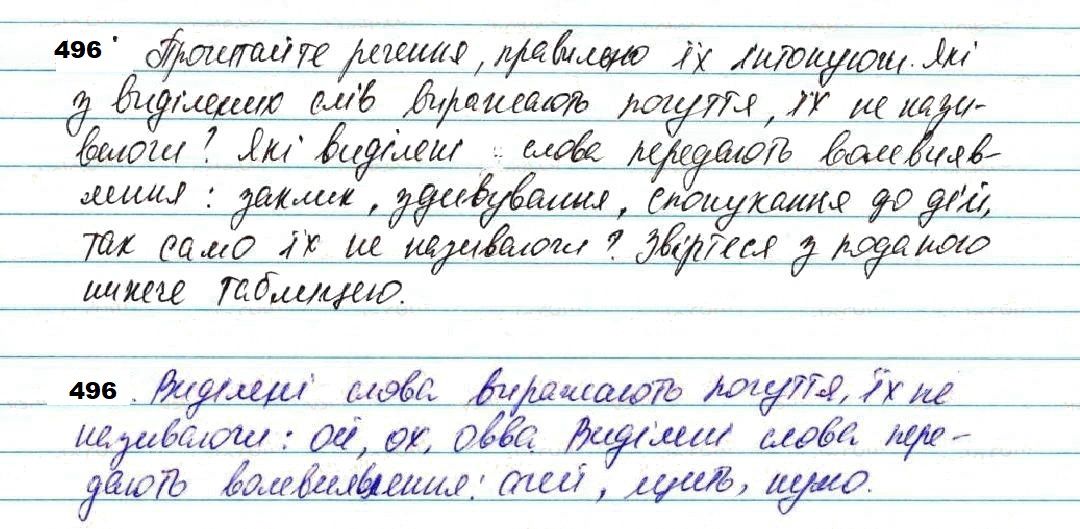 496 Прочитайте речення, правильно їх інтонуючи. Які
з виділених слів виражають почуття, їх не нази-
ваючи? Які виділені слова передають волевияв-
лення: заклик, здивування, спонукання до дій,
так само їх не називаючи? Звіртеся з поданою
нижче таблицею.
496. Виділені слова виражають почуття, їх не
називаючи: ой, ох, овва. Виділені слова пере-
дають волевиявлення: агей, цить, нумо.